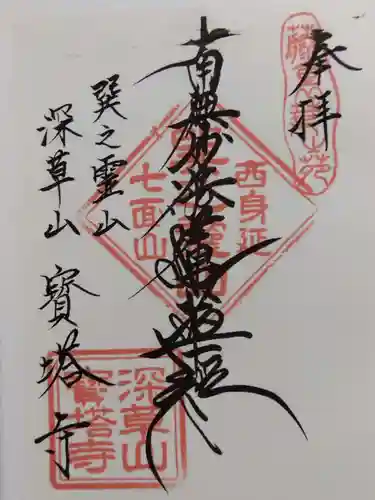 奉拝
南無妙法蓮華経
巽之霊山
深草山 寶塔寺
西身延
七面山
深草山
寳塔寺